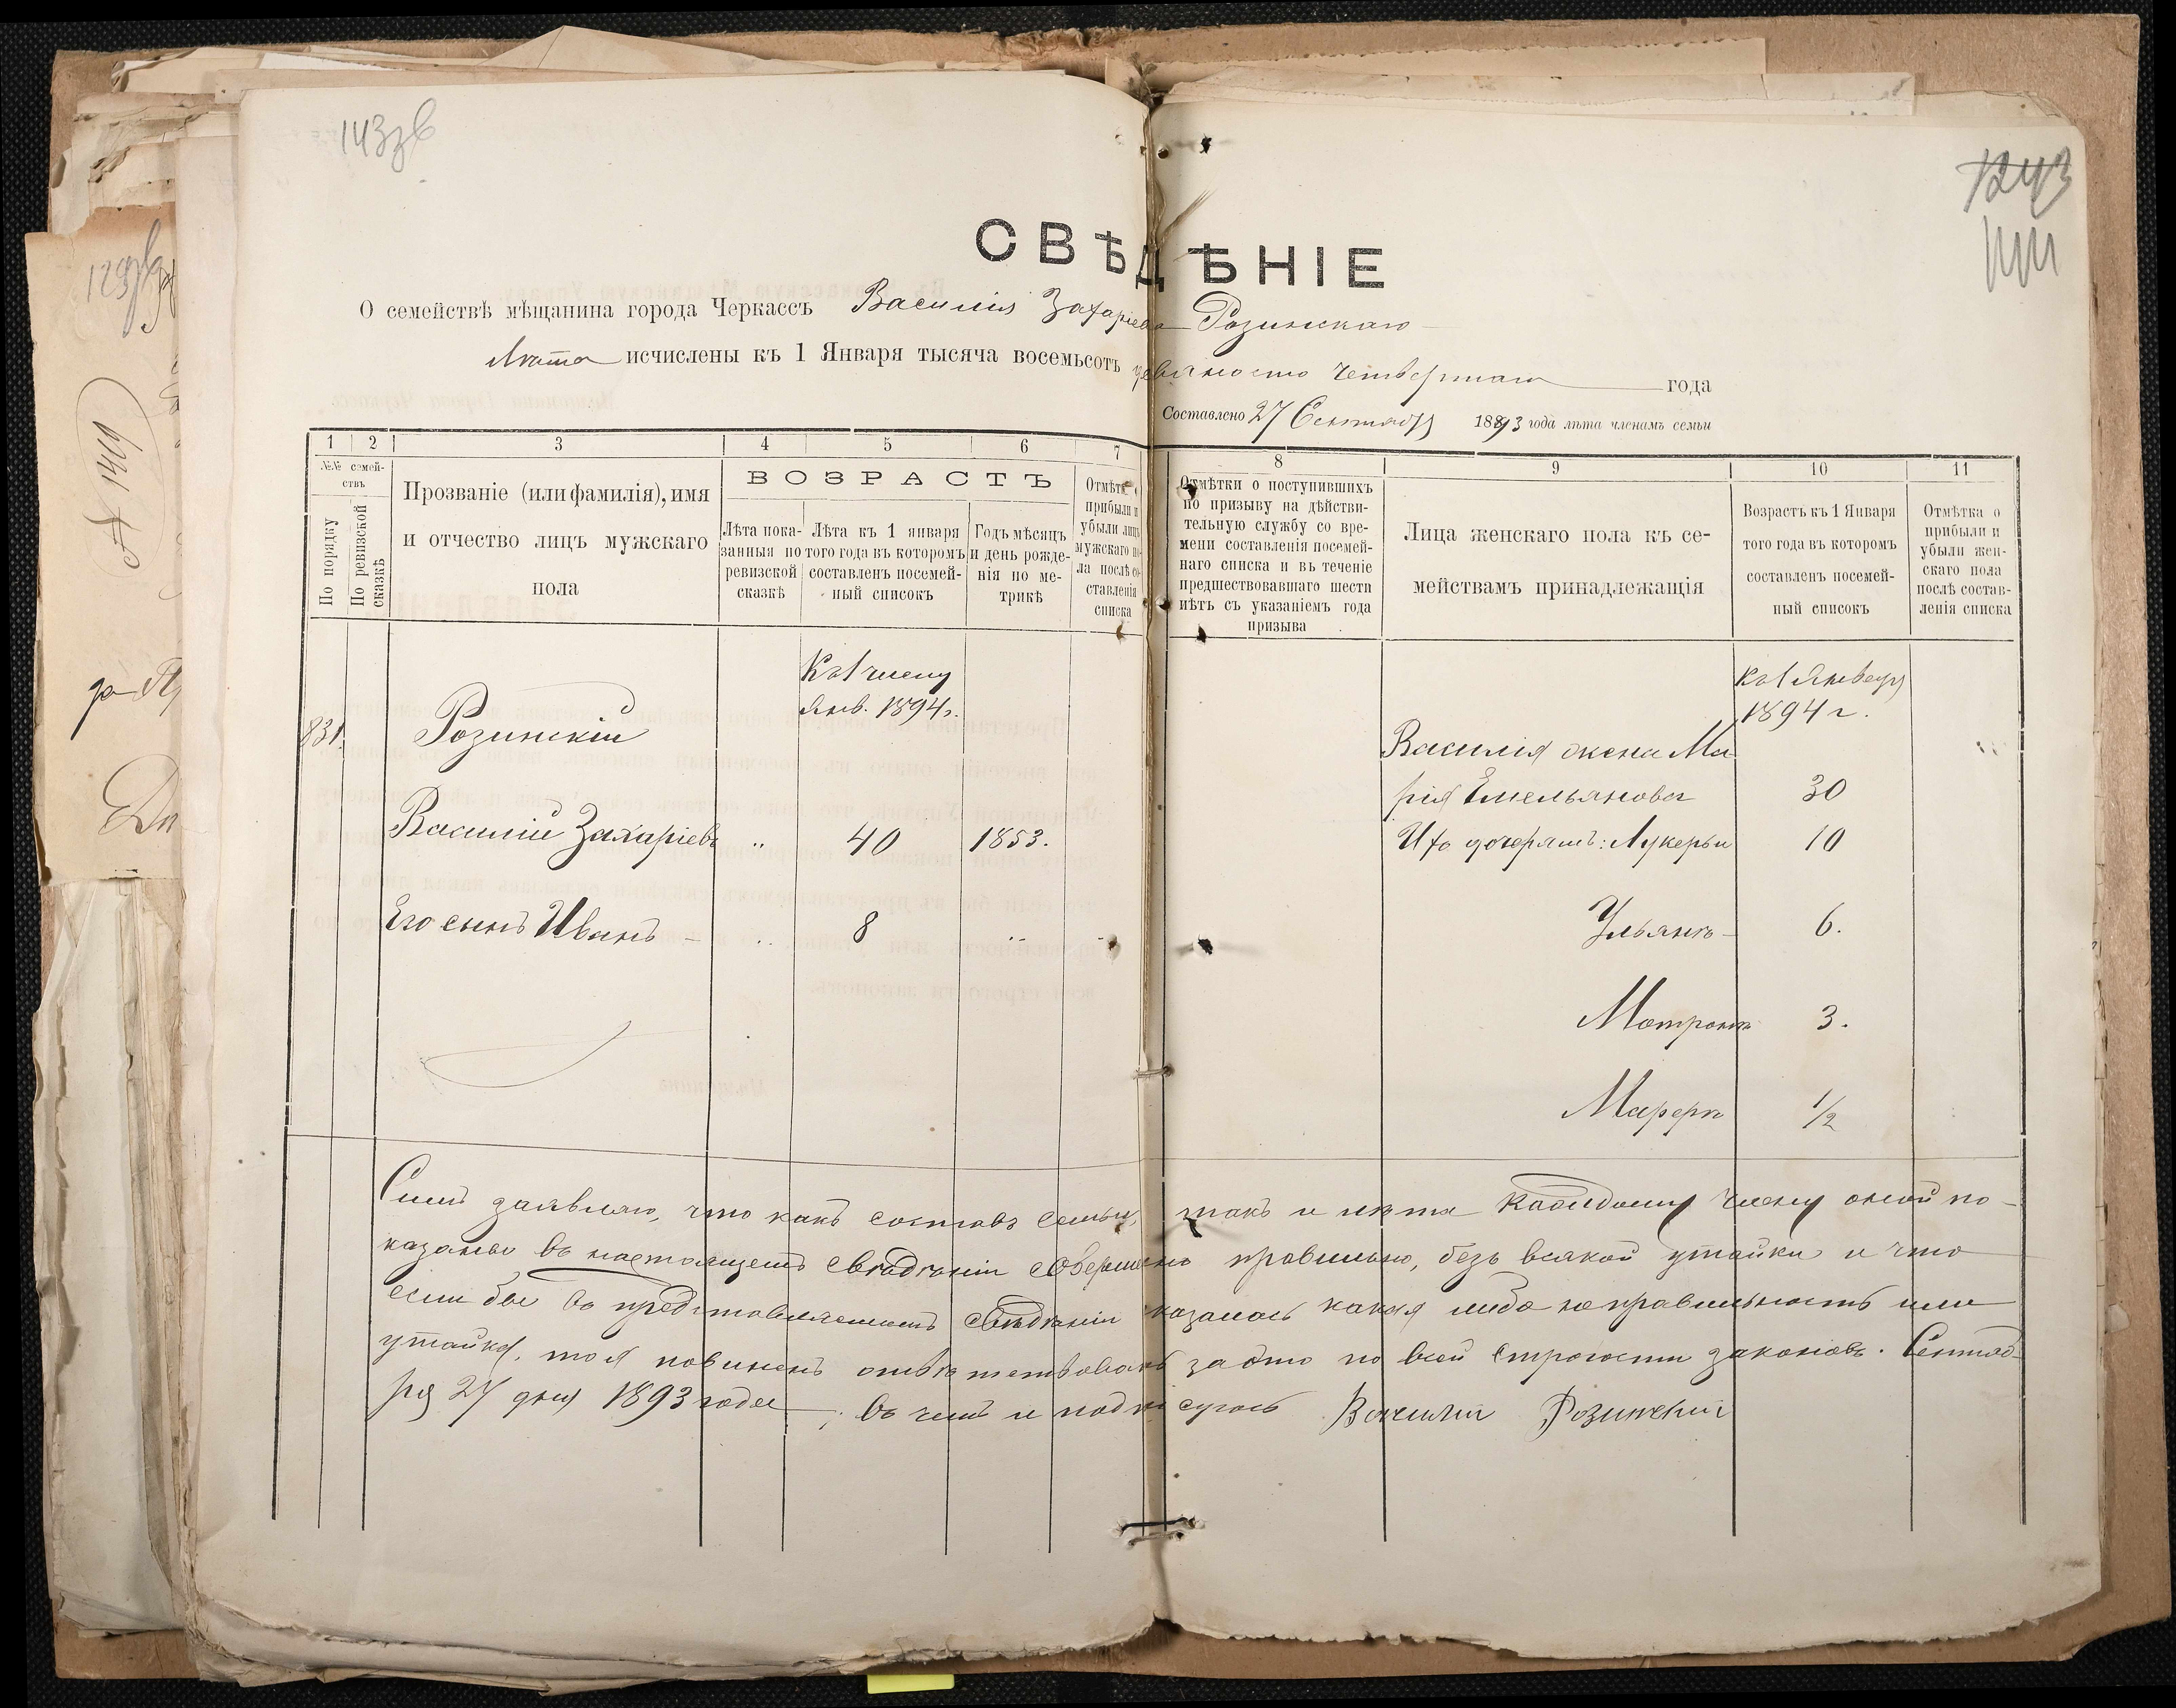 143зв
1243
СВѢДѢНІЕ
О семействѣ мѣщанина города Черкассъ Василія Захаріева Розинскаго
Лѣта исчислены къ 1 Января тысяча восемьсотъ девяносто четвертаго года
Составлено 27 Сентября 1893 года лѣта членамъ семьи
1 2 3 4 5 6 7 8 9 10 11
№№ семей-
ствъ
По порядку
По ревизской
сказкѣ
Прозваніе (или фамилія), имя
и отчество лицъ мужскаго
пола
ВОЗРАСТЪ
Лѣта пока-
занныя по
ревизской
сказкѣ
Лѣта къ 1 января
того года въ которомъ
составленъ посемей-
ный списокъ
Годъ мѣсяцъ
и день рожде-
нія по ме-
трикѣ
Отмѣтк
прибыли и
убыли лицъ
мужскаго по-
ла послѣ со-
ставленія
списка
Отмѣтки о поступившихъ
по призыву на дѣйстви-
тельную службу со вре-
мени составленія посемей-
наго списка и въ теченіе
предшествовавшаго шести
лѣтъ съ указаніемъ года
призыва
Лица женскаго пола къ се-
мействамъ принадлежащія
Возрастъ къ 1 Января
того года въ которомъ
составленъ посемей-
ный списокъ
Отмѣтка о
прибыли и
убыли жен-
скаго пола
послѣ состав-
ленія списка
Къ 1 числу
Янв. 1894 г.
Къ 1 Января
1894 г.
831.
Розинскій
Василій Захаріевъ „ 40 1853.
Его сынъ Иванъ – „ 8 „ –
Василія жена Ма
рія Емельянова 30
Ихъ дочерямъ: Лукерьи 10
Ульянѣ – 6.
Мотронѣ 3.
Марфѣ ½
Симъ заявляю, что какъ составъ семьи, такъ и лѣта каждому члену оной по-
казаны въ настоящемъ свѣдѣніи совершенно правильно, безъ всякой утайки и что
если бы въ представляемомъ свѣдѣніи казалась какая либо неправильность или
утайка, то я повиненъ отвѣтствовать за это по всей строгости законовъ. Сентяб-
ря 27 дня 1893 года, въ чемъ и подписуюсь Василий Розинский
№ 1409